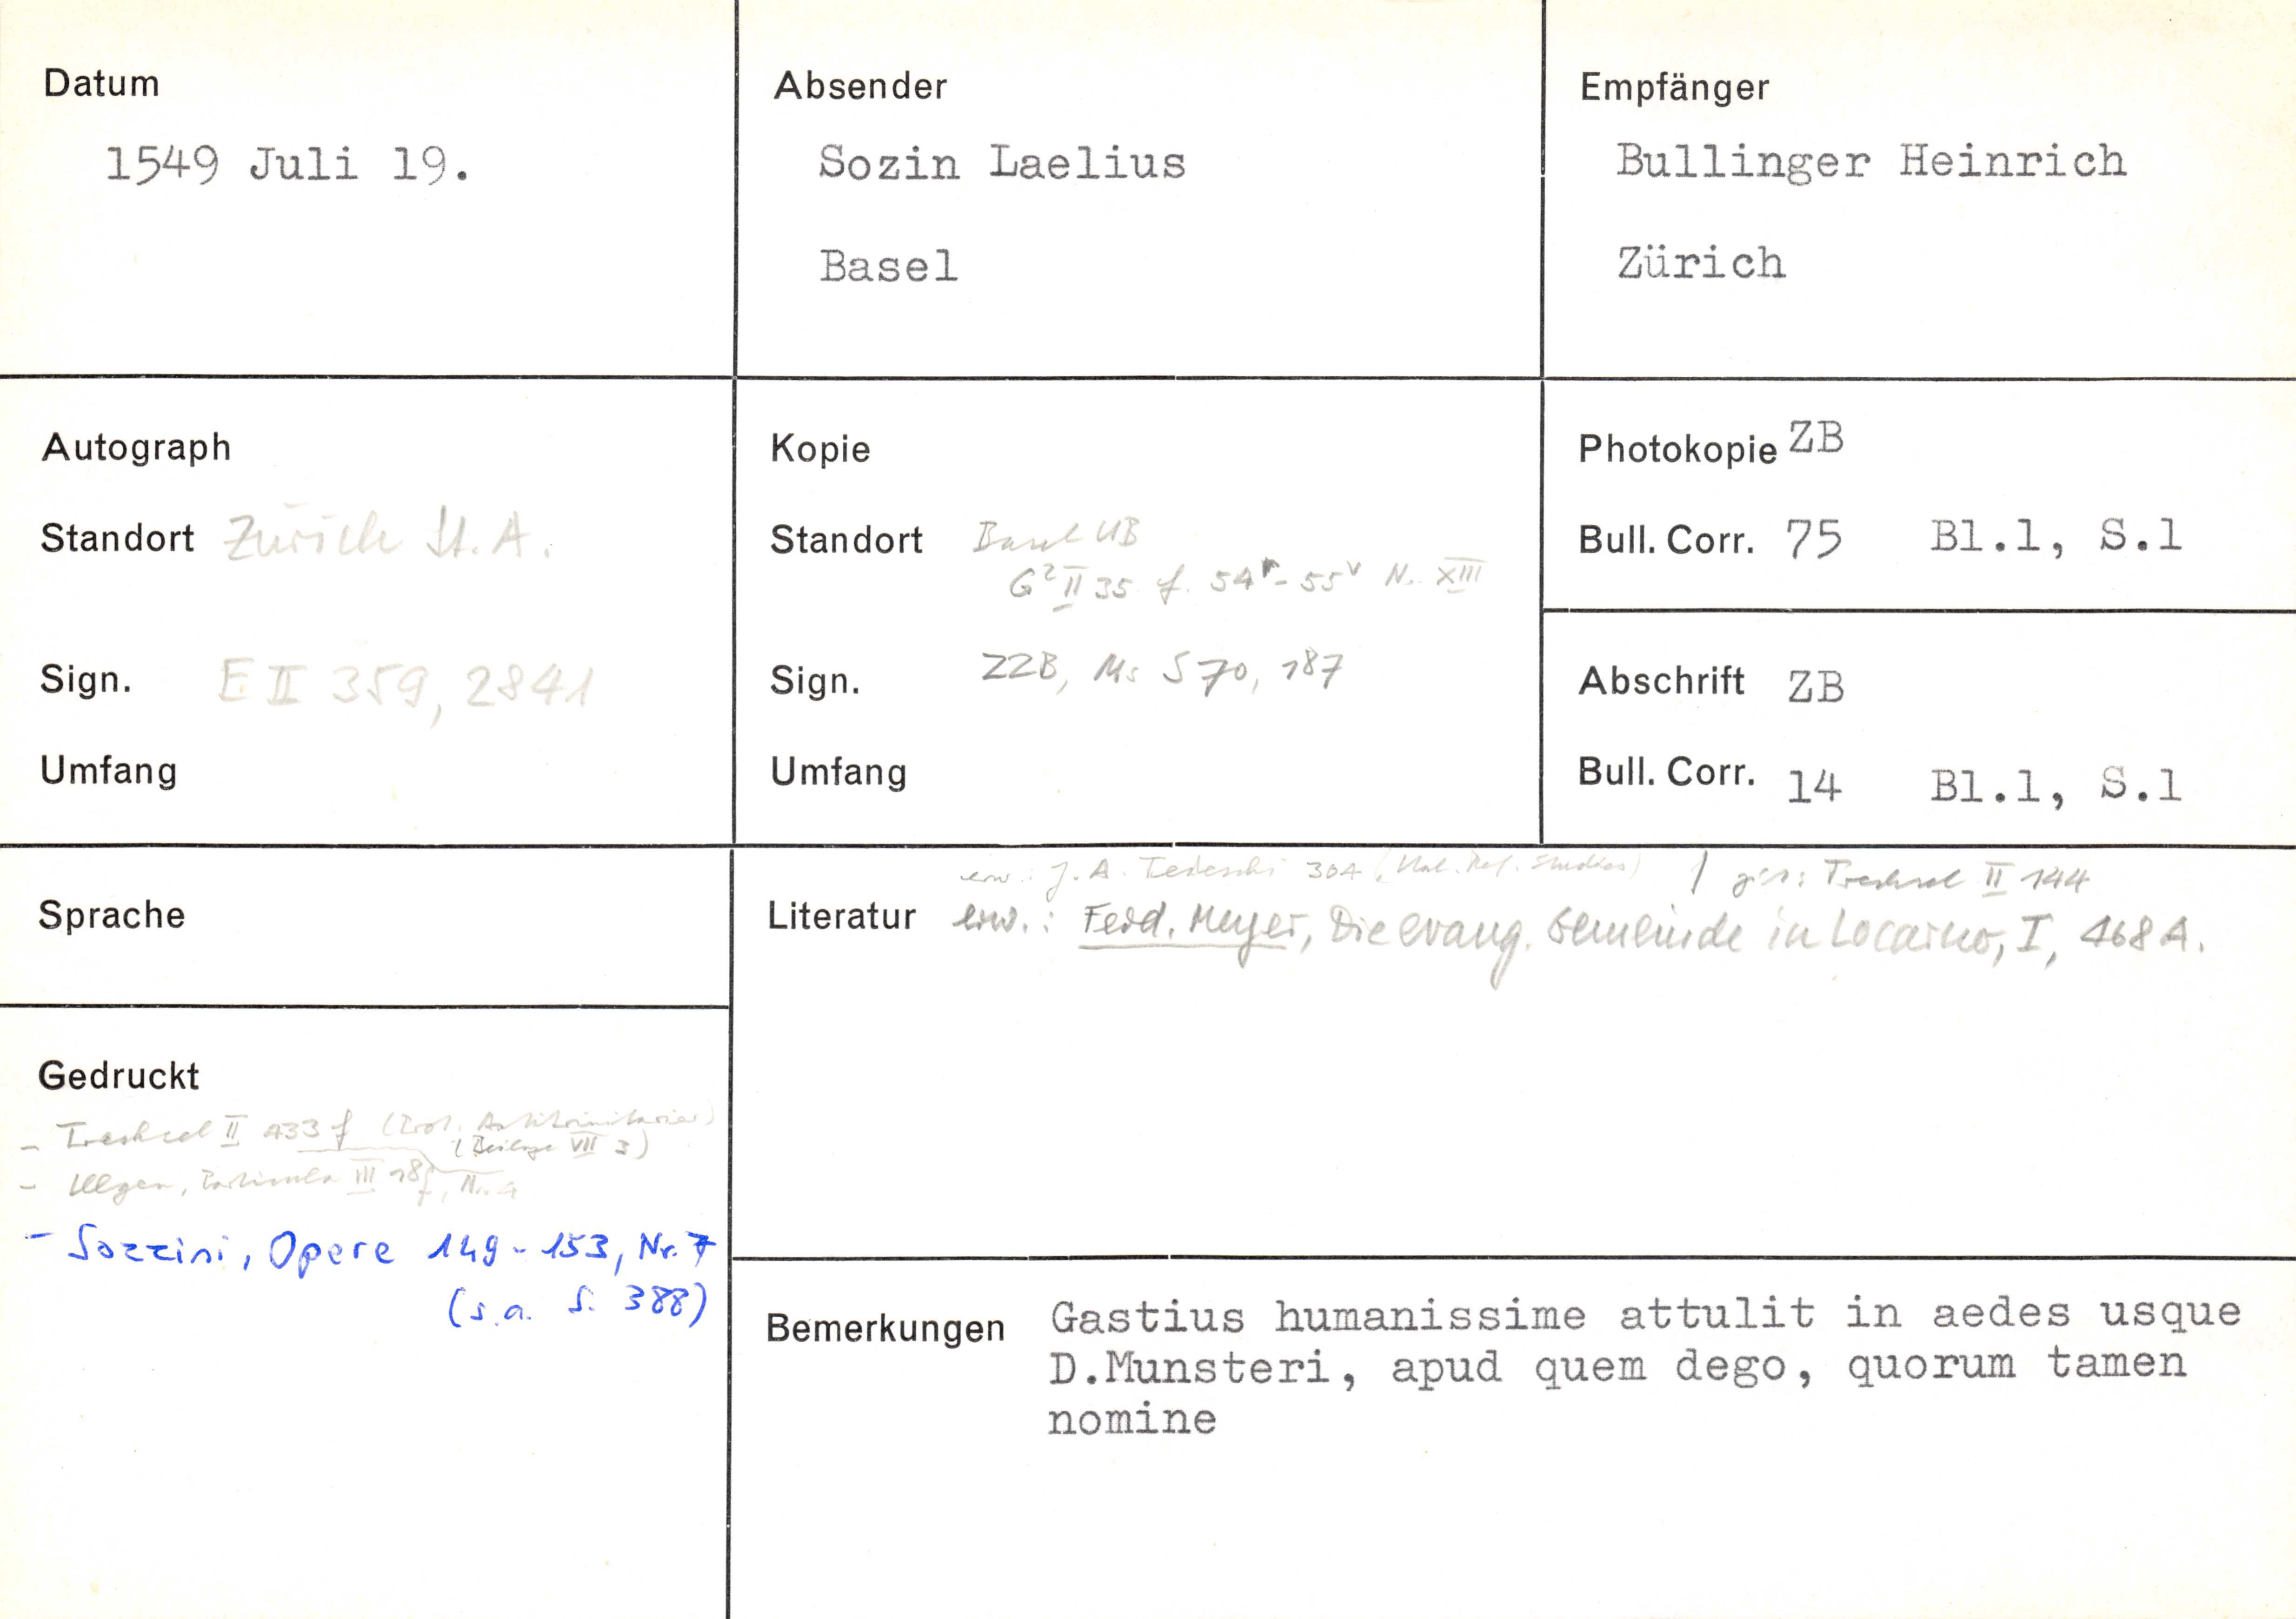 Datum
1549 Juli 19.
Absender
Sozin Laelius
Basel
Empfänger
Bullinger Heinrich
Zürich
Autograph
Standort Zürich St.A.
Sign. E II 359, 2841
Umfang
Kopie
Standort Basel UB
G² II 35 f. 54r-55v N. XIII
Sign. ZZB, Ms S 70, 187
Umfang
Photokopie ZB
Bull. Corr. 75 Bl.1, S.1
Abschrift ZB
Bull. Corr. 14 Bl.1, S.1
Sprache
Literatur
erw.: J. A. Tedeschi 304 (Ital. Ref. Studies) / Trechsel II 144
erw.: Ferd. Meyer, Die evang. Gemeinde in Locarno, I, 468 A.
Gedruckt
- Trechsel II 433 f (Prot. Antitrinitarier)
(Beilage VII 3)
- Illgen, III 18f, Nr. 4
- Sozzini, Opere 149-153, Nr. 7
(s.a. S. 388)
Bemerkungen
Gastius humanissime attulit in aedes usque
D.Munsteri, apud quem dego, quorum tamen
nomine